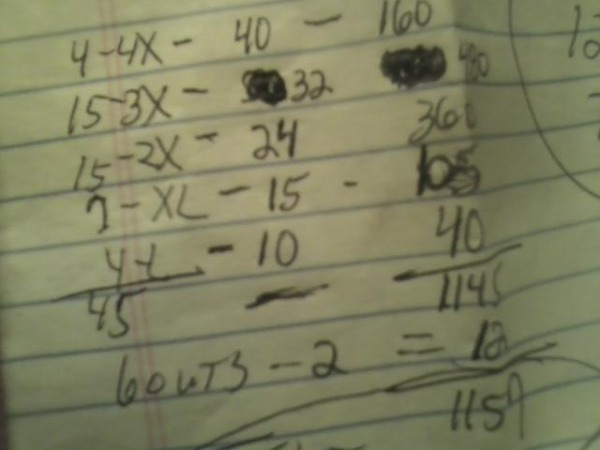 4-4X - 40 - 160
15-3X - 32 480
15-2X - 24 360
7-XL - 15 - 105
4-L - 10 40
45 - 1145
6outs - 2 = 12
1157
12